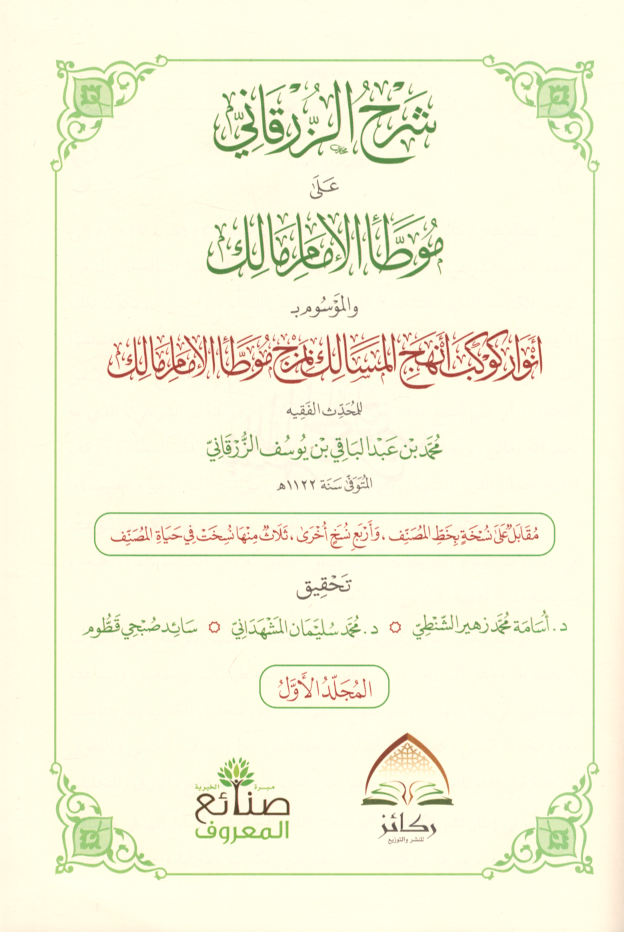 شَرْحُ الزُّرْقَانِيِّ
عَلَى
مُوَطَّأ الإمَامِ مَالِك
والمَوْسُوم بـ
أَنْوَار كَوْكَبِ أَنْهَجِ المَسَالِك بِمَزْجِ مُوَطَّأ الإمَامِ مَالِك
للمُحَدِّث الفَقِيه
مُحَمَّد بْن عَبْد البَاقِي بْن يُوسُف الزُّرْقَانِيّ
المُتَوَفَّى سَنَة ١١٢٢هـ
مُقَابَلٌ عَلَى نُسْخَةٍ بِخَطِّ المُصَنِّف ، وَأَرْبَعِ نُسَخٍ أُخْرَى ، ثَلَاثٌ مِنْهَا نُسِخَتْ فِي حَيَاةِ المُصَنِّف
تَحْقِيق
د. أُسَامَة مُحَمَّد زهير الشَّنْطِيّ د. مُحَمَّد سُلَيْمَان المَشْهَدَانِيّ سَائِد صُبْحِي قَطُّوم
المُجَلَّدُ الأَوَّلُ
ركائز
للنشر والتوزيع
مبرة الخيرية
صنائع
المعروف